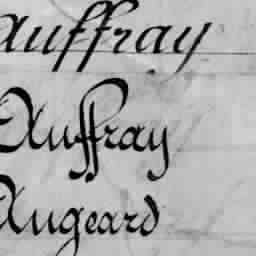 Auffray
Auffray
Augeard